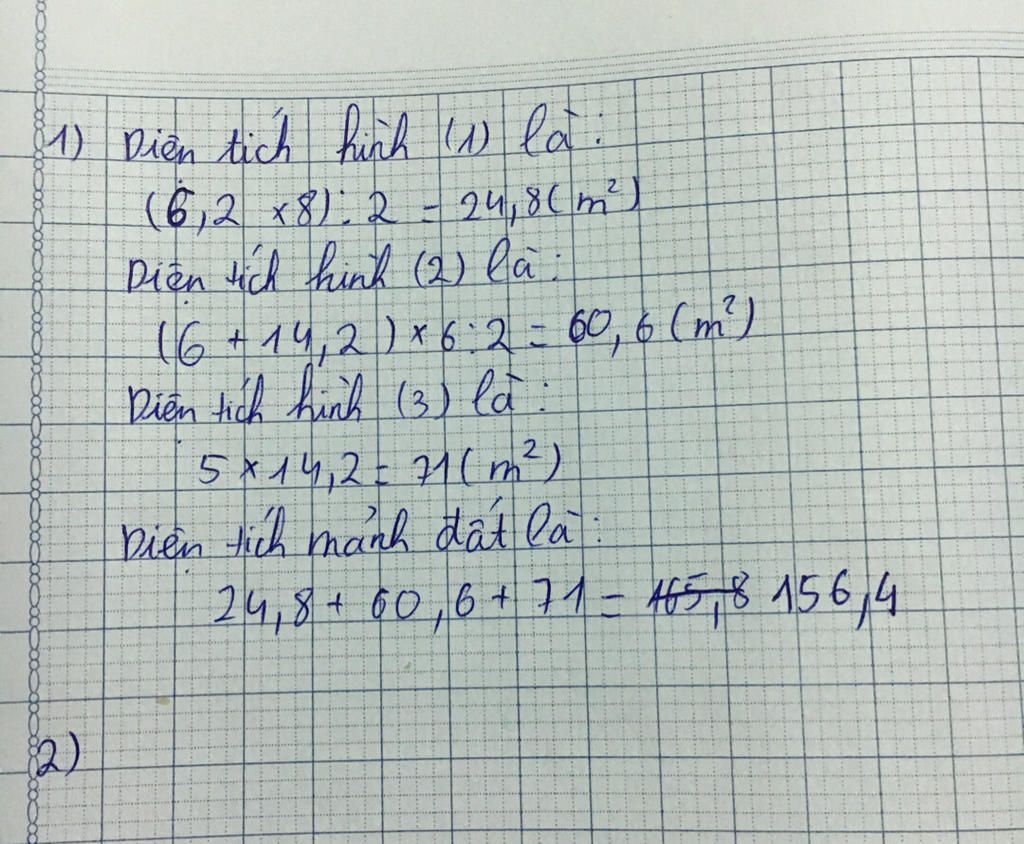 1) Diện tích hình (1) là:
(6,2 × 8) : 2 = 24,8 (m²)
Diện tích hình (2) là:
(6 + 14,2) × 6 : 2 = 60,6 (m²)
Diện tích hình (3) là:
5 × 14,2 = 71 (m²)
Diện tích mảnh đất là:
24,8 + 60,6 + 71 = 165,8 156,4
2)